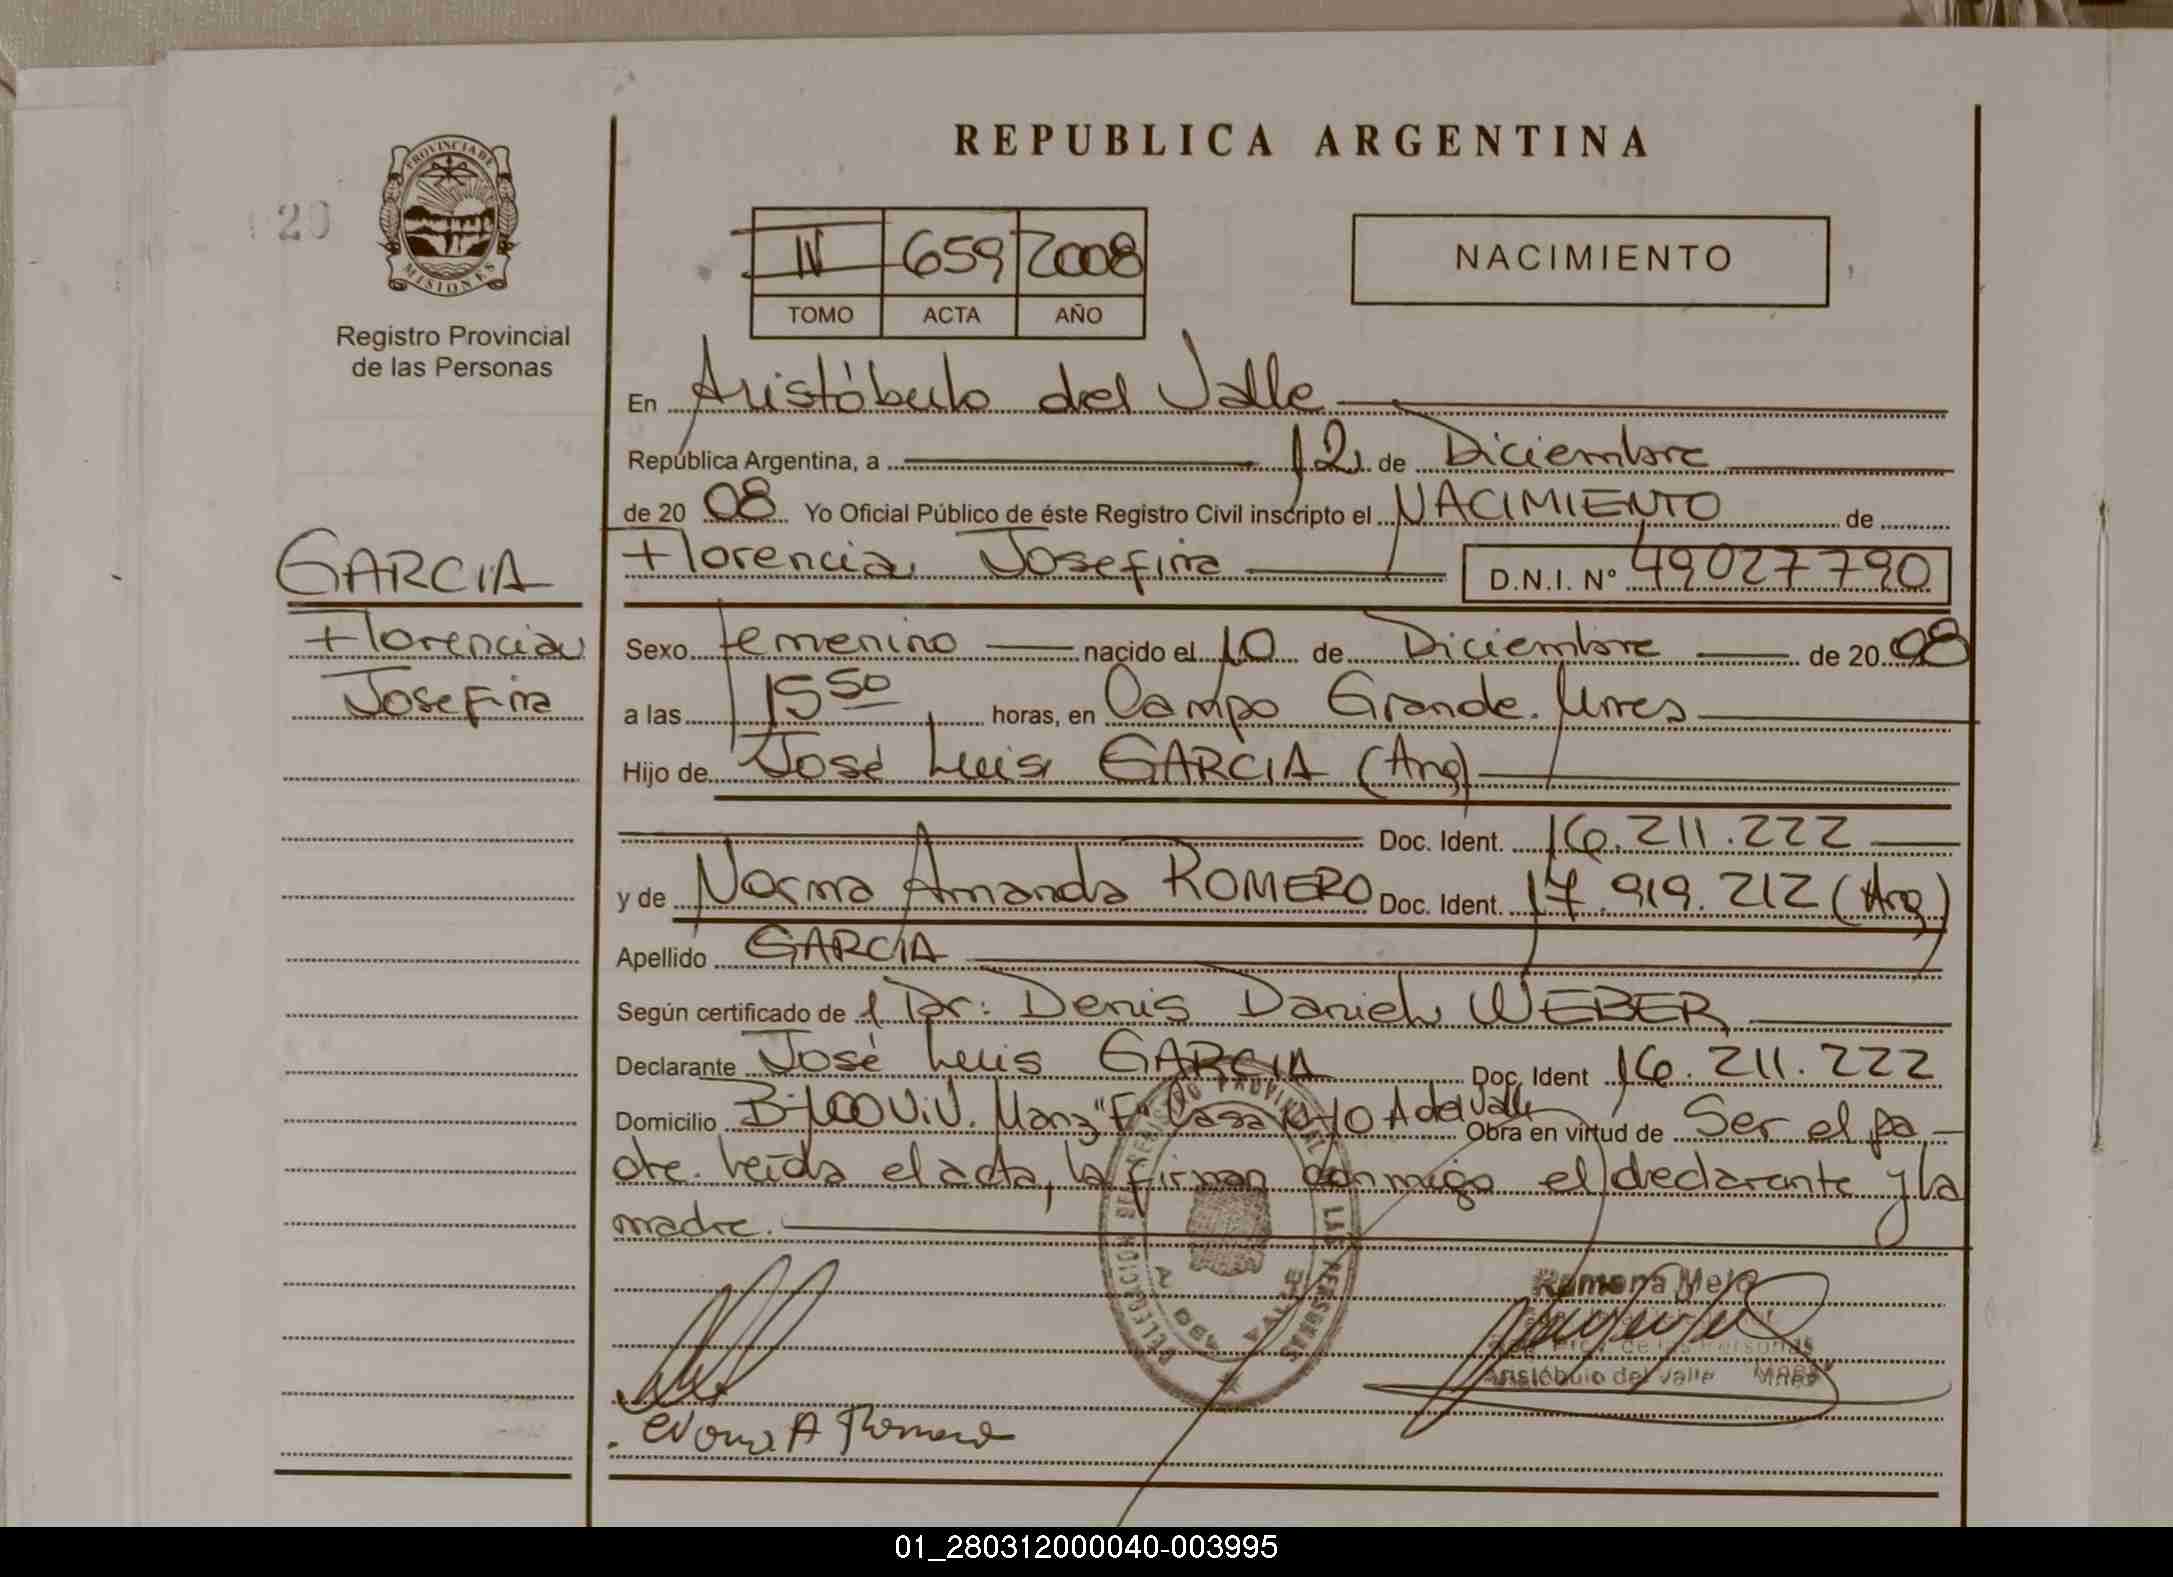 REPUBLICA ARGENTINA
20
PROVINCIA DE MISIONES
Registro Provincial
de las Personas
IV 659 2008
TOMO ACTA AÑO
NACIMIENTO
En Aristóbulo del Valle
República Argentina, a 12 de Diciembre
de 20 08 Yo Oficial Público de éste Registro Civil inscripto el NACIMIENTO de
Florencia Josefina D.N.I. Nº 49027790
GARCIA
Florencia
Josefina
Sexo femenino nacido el 10 de Diciembre de 20 08
a las 15 50 horas, en Campo Grande. Mnes
Hijo de José Luis GARCIA (Arg)
Doc. Ident. 16.211.222
y de Norma Amanda ROMERO Doc. Ident. 17.919.212 (Arg)
Apellido GARCIA
Según certificado de Dr: Denis Daniel WEBER
Declarante José Luis GARCIA Doc. Ident 16.211.222
Domicilio Bº 100 Viv. Manz "F" Casa Nº10 A del Valle Obra en virtud de Ser el pa-
dre. Leída el acta, la firman conmigo el declarante y la
madre.
REGISTRO PROVINCIAL DE LAS PERSONAS
Ramona Melo
de las Personas
Aristóbulo del Valle Mnes
Norma A Romero
01_280312000040-003995